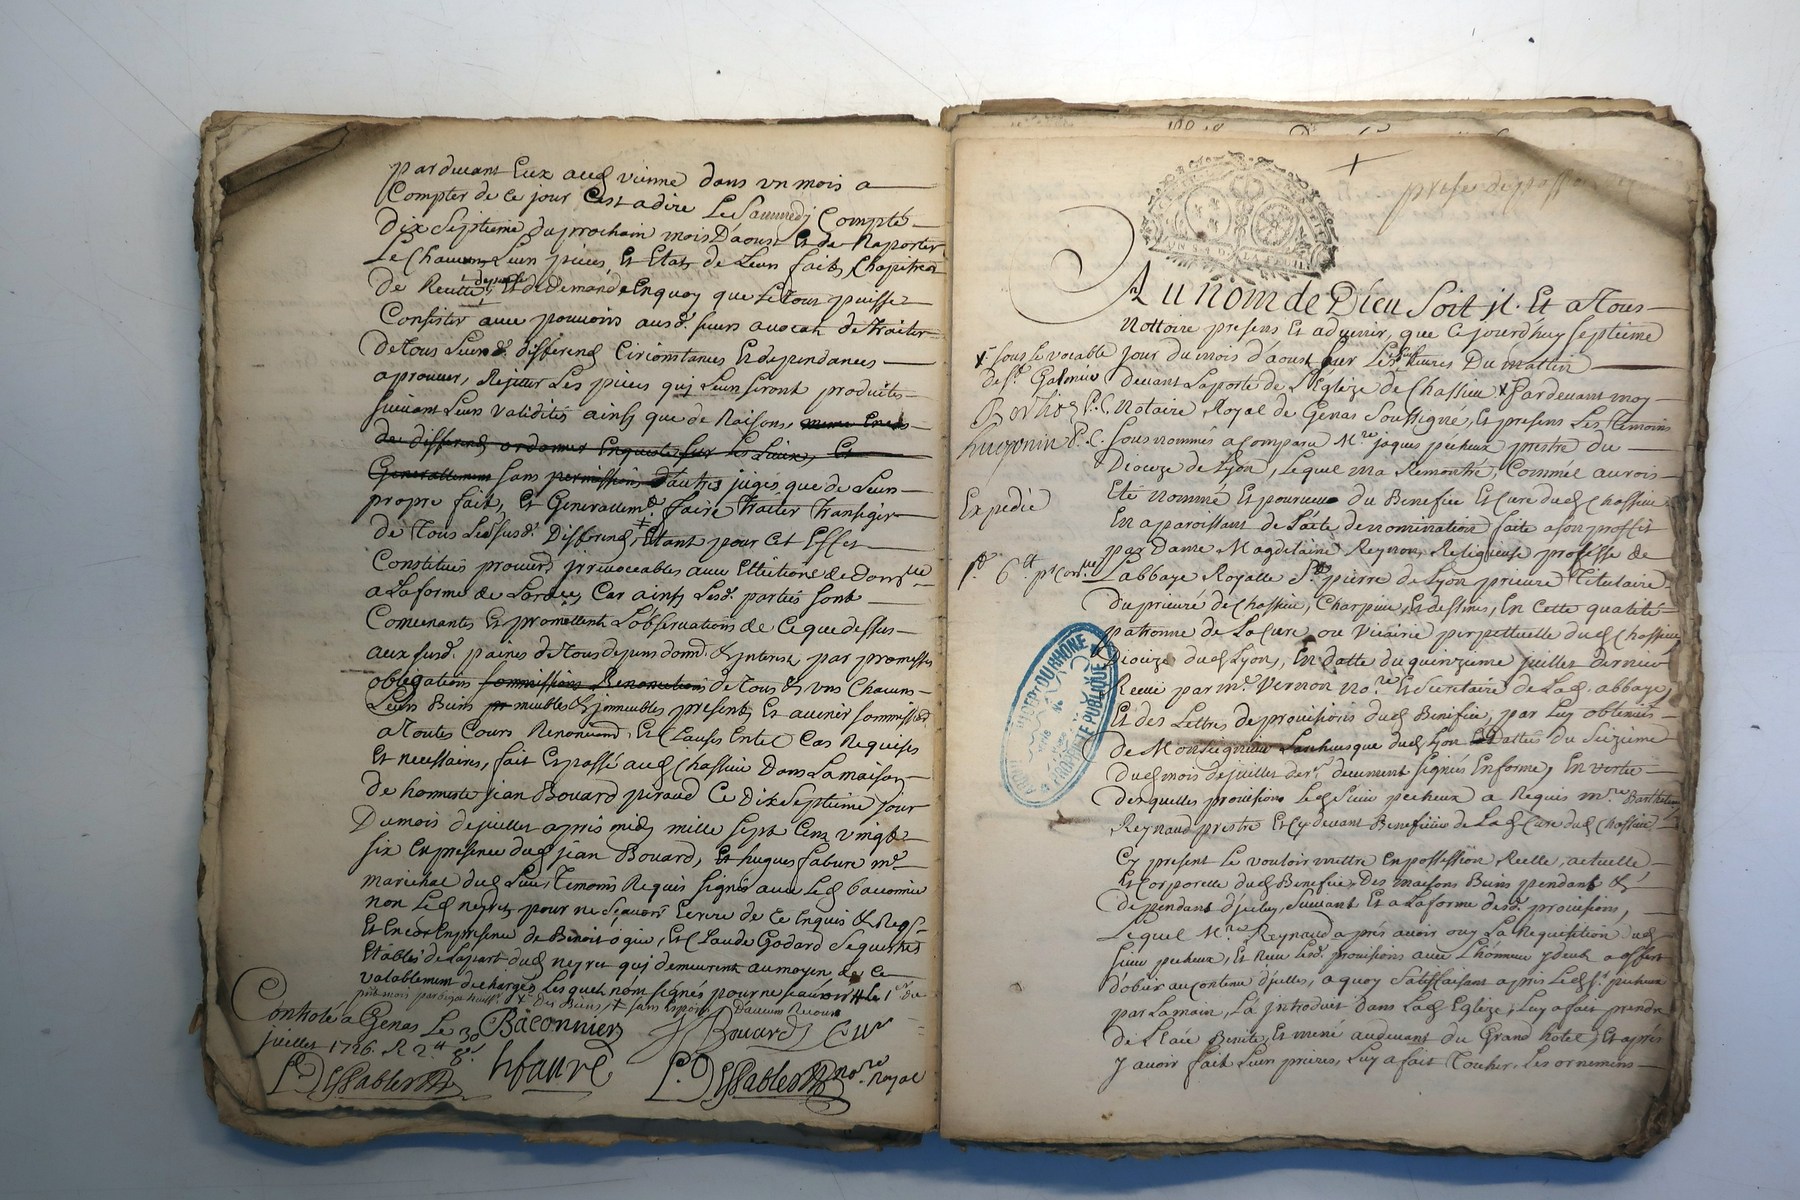 par devant Eux aud vienne dans un mois a
Compter de ce jour C'est a dire Le Sammedj Compté
dix Septieme du prochain mois D'aoust Et de Raporter
Le Chacun Leur pieces, Et Etats de Leur faits, Chapitres
de Recette, depense Et de Demande Enquoy que Le tout puisse
Consister avec pouvoirs ausd. sieurs avocats de traiter
De Tous Leurs d. differends Circonstances Et dependances
aprouver, Rejetter Les pieces quj Leur seront produites
suivant Leur validités ainsy que de Raisons,
de differends ordonner Enqueste sur les Lieux, Et
Generallement sans permission d'autres juges que de Leur
propre fait, Et Generalemt. faire traiter transiger
de Tous Lesd. susd. Differends, + Etant pour Cet Effet
Constitués procureurs jrrevocables avec Ellections de Dom.lle
a La forme de L'ordce, Car ainsy Lesd. parties sont
Convenantes Et promettent L'observations de Ce que dessus
aux susd. paines de Tous depens dom. & jnterest par promesses
obligations sommissions Renonciations de Tous & uns Chacuns
Leurs Biens meubles & jmmeubles presents, Et avenir sommissd.
a Toutes Cours Renonciaond. Et Clauses En tel Cas Requises
Et necessaires, fait Et passé aud Chassieu Dans La maison
de honneste jean Bouard piraud Ce Dix Septieme jour
Du mois de juillet apres midy mille sept Cens vingt
six En presence dud jean Bouard, Et hugues fabure me.
marechal dud Lieu, Temoins Requis signés avec Led baconnier
non Led neyret pour ne sçavoir Ecrire de Ce Enquis & Reqs.
Et Encor En presence de Benoit ogier, Et Claude Godard Sequestres
Etablis de La part dud neyret quj demeurent au moyen de Ce
valablement dechargés Lesquels n'ont signés pour ne sçavoir
+ Des Biens, + sans espoir D'aucun Recours
Controlé a Genas Le 30
juillet 1726. R 2 tt 8 s.
Baconnier
J Bouard
hfaure
nore. Royal
Au nom de Dieu Soit jl. Et a Tous
Nottoire presens Et advenir, que Cejourdhuy septieme
jour du mois d'aoust sur Les huit heures Du mattin
devant La porte de L'Eglize de Chassieu x Pardevant moy
x sous Le vocable
de St. Galmier
Notaire Royal de Genas Soussigné, Et presens Les temoins
sous nommés a comparu Mre. jaques pecheux prestre du
Dioceze de Lyon, Lequel ma Remontré, Comme il auroit
Eté nommé Et pourveu du Benefice Et Cure dud Chassieu
En aparoissant de L'acte de nomination faite a son proffit
Expedié
par Dame Magdelaine Reynon, Religieuse professe de
L'abbaye Royalle St. pierre de Lyon prieure Titulaire
du prieuré de Chassieu, Charpieu, Et dessines, En Cette qualité
patronne de La Cure ou Vicairie perpetuelle dud Chassieu
Dioceze dud Lyon, En datte du quinzieme juillet dernier
Receu par me. Vernon nore. Et Secretaire de Lad. abbaye,
Et des Lettres de provisions dud Benefice, par Luy obtenues
de Monseigneur Larchevesque dud Lyon Dattées du Seizieme
dud mois de juillet der. deuement signées En forme, En vertu
desquelles provisions Led Sieur pecheux a Requis mre. Barthelemy
Reynaud prestre Et Cy devant Beneficier de Lad Cure dud Chassieu
Cy present Le vouloir mettre En possession Reelle, actuelle
Et Corporelle dud Benefice, Des maisons Biens pendants &
dependants d'jceluy, Suivant Et a La forme desd. provisions,
Lequel Mre. Reynaud apres avoir ouy La Requisition dud
sieur pecheux, Et Reçeu Lesd. provisions avec L'honneur y deub a offert
d'obeir au Contenu d'jcelles, a quoy Satisfaisant a pris Led S. pecheux
par La main, L'a jntroduit dans Lad Eglize, Luy a fait prendre
de L'eau Benite, Et mené audevant du Grand hotel, Et aprés
y avoir fait Leur prieres, Luy a fait Toucher Les ornements